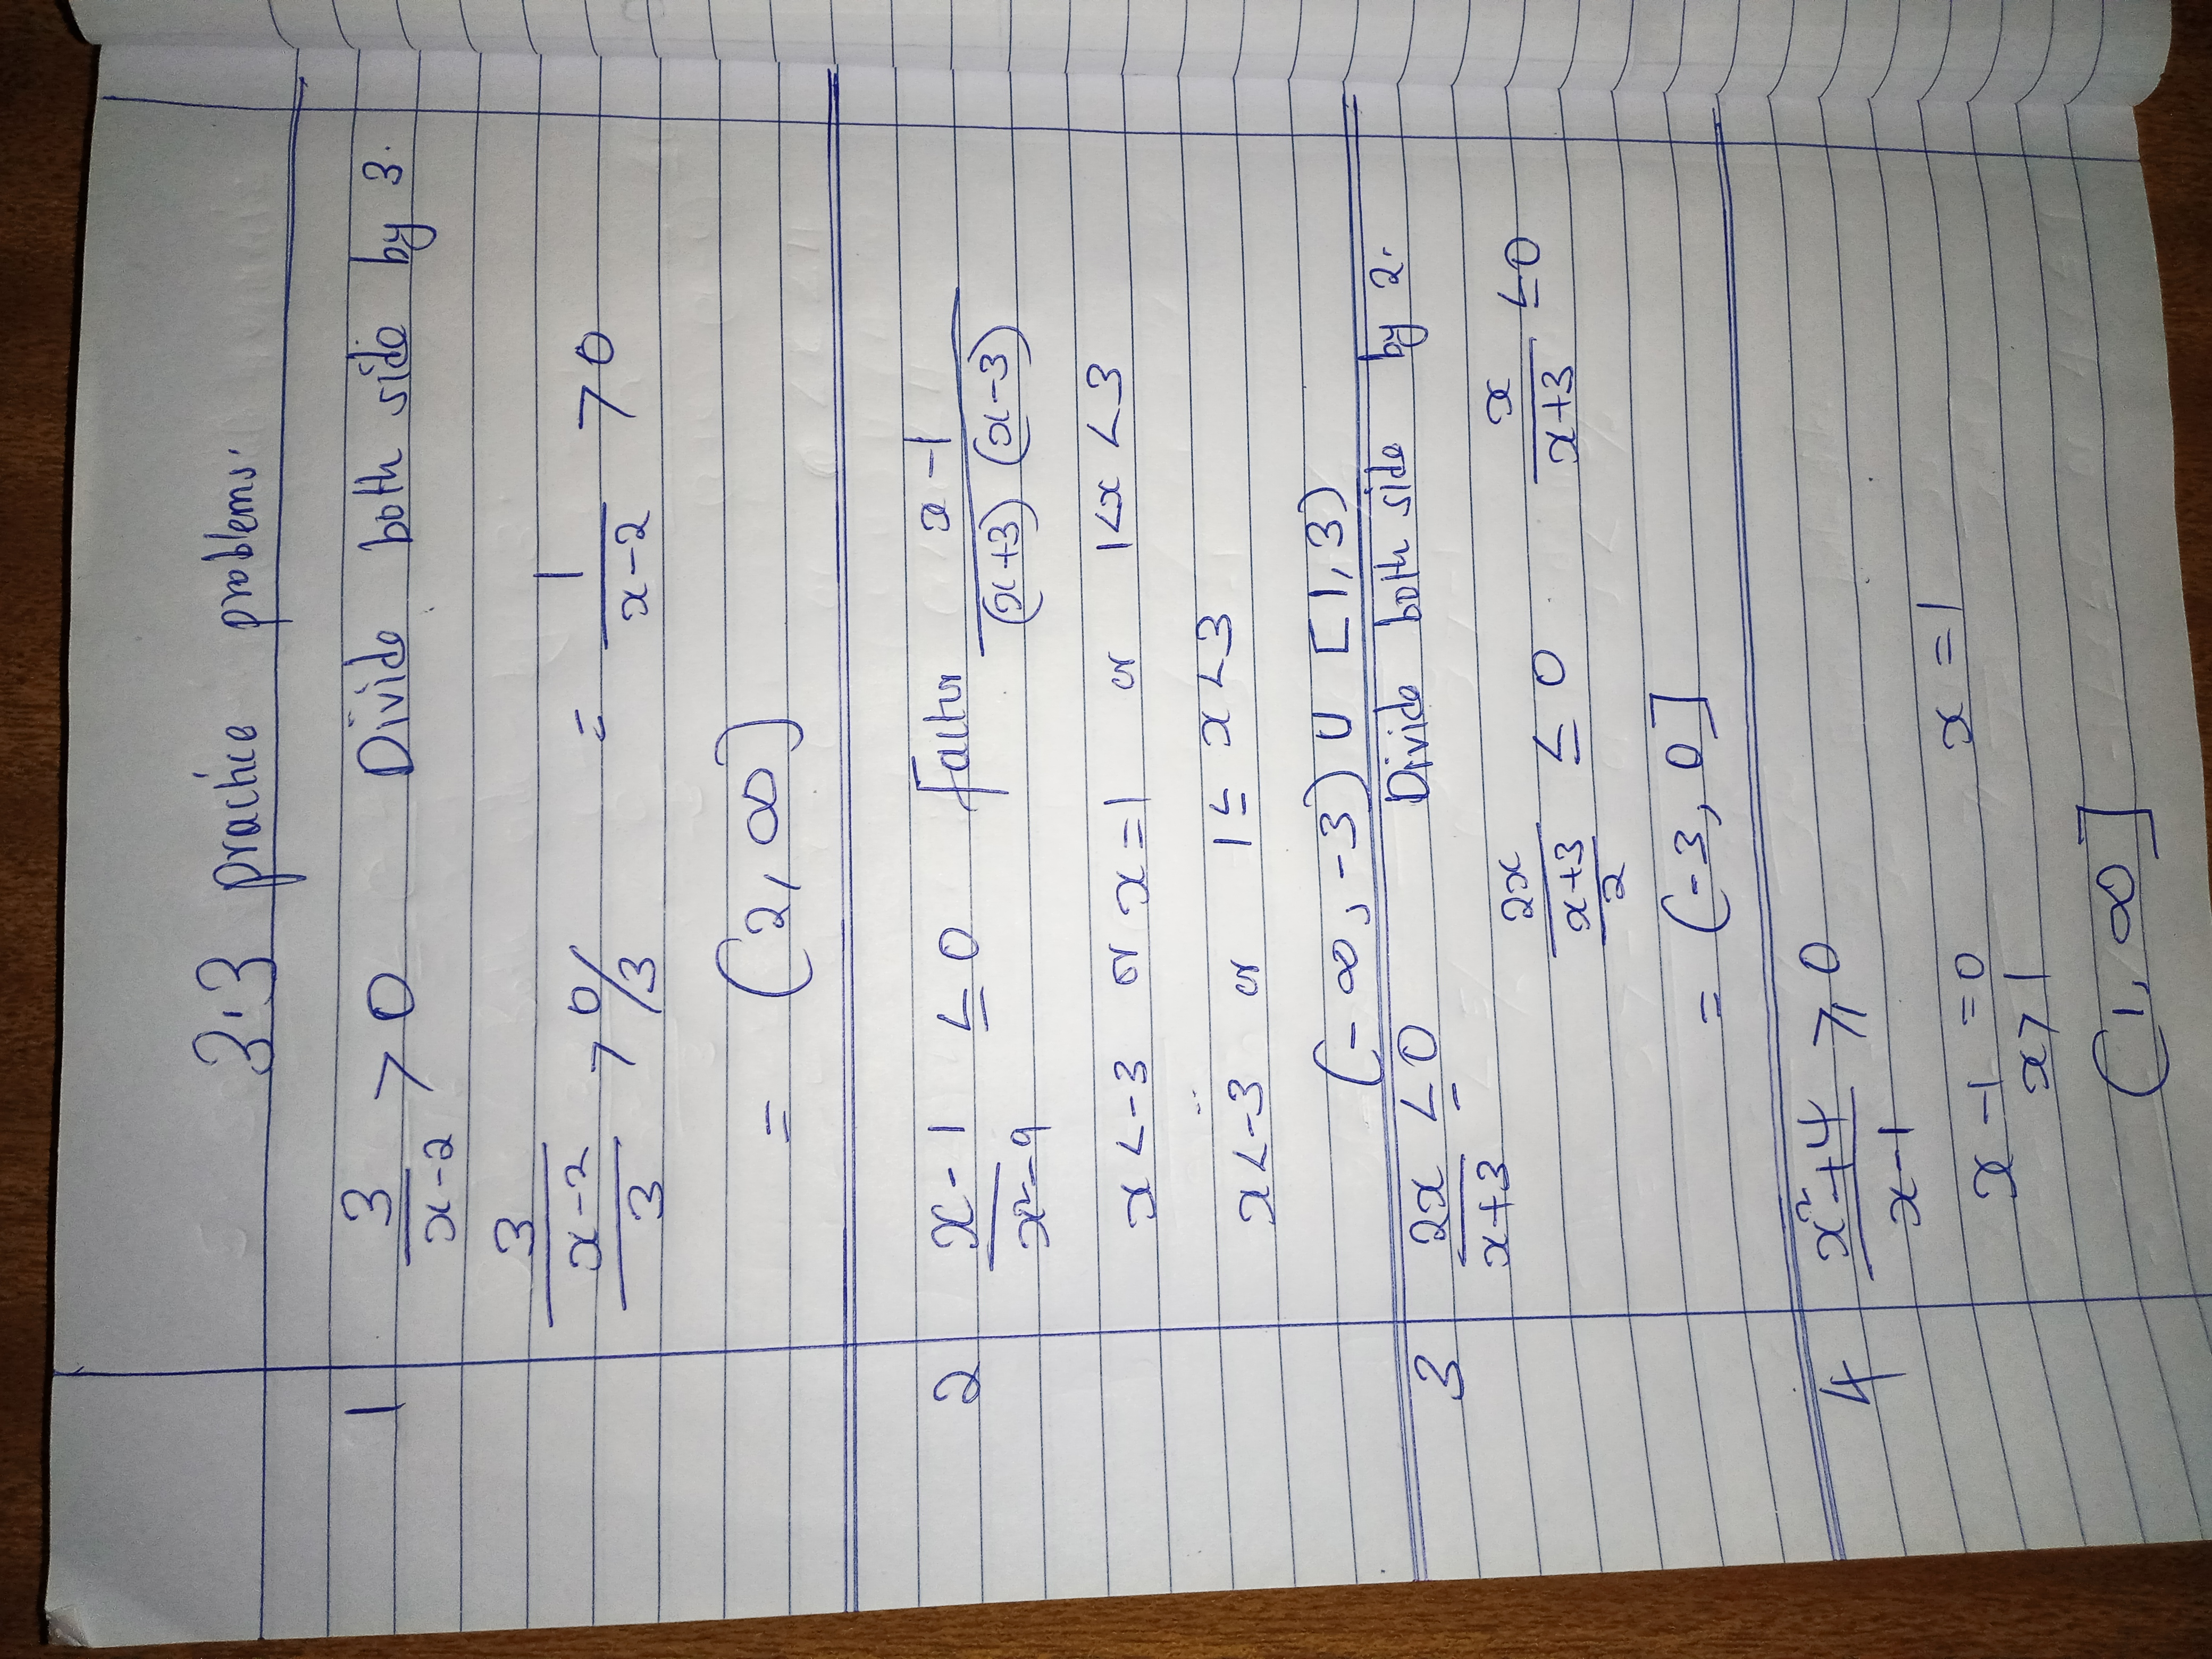 3.3 practice problems.
1 3/x-2 > 0 Divide both side by 3.
3/x-2/3 > 0/3 = 1/x-2 > 0
= (2, ∞)
2 x-1/x²-9 ≤ 0 Factor x-1/(x+3)(x-3)
x<-3 or x=1 or 1<x<3
x<-3 or 1≤x<3
(-∞, -3) ∪ [1,3)
3 2x/x+3 ≤ 0 Divide both side by 2.
2x/x+3/2 ≤ 0 x/x+3 ≤0
= (-3, 0]
4 x²+4/x-1 ≥ 0
x-1=0 x=1
x>1
(1, ∞]